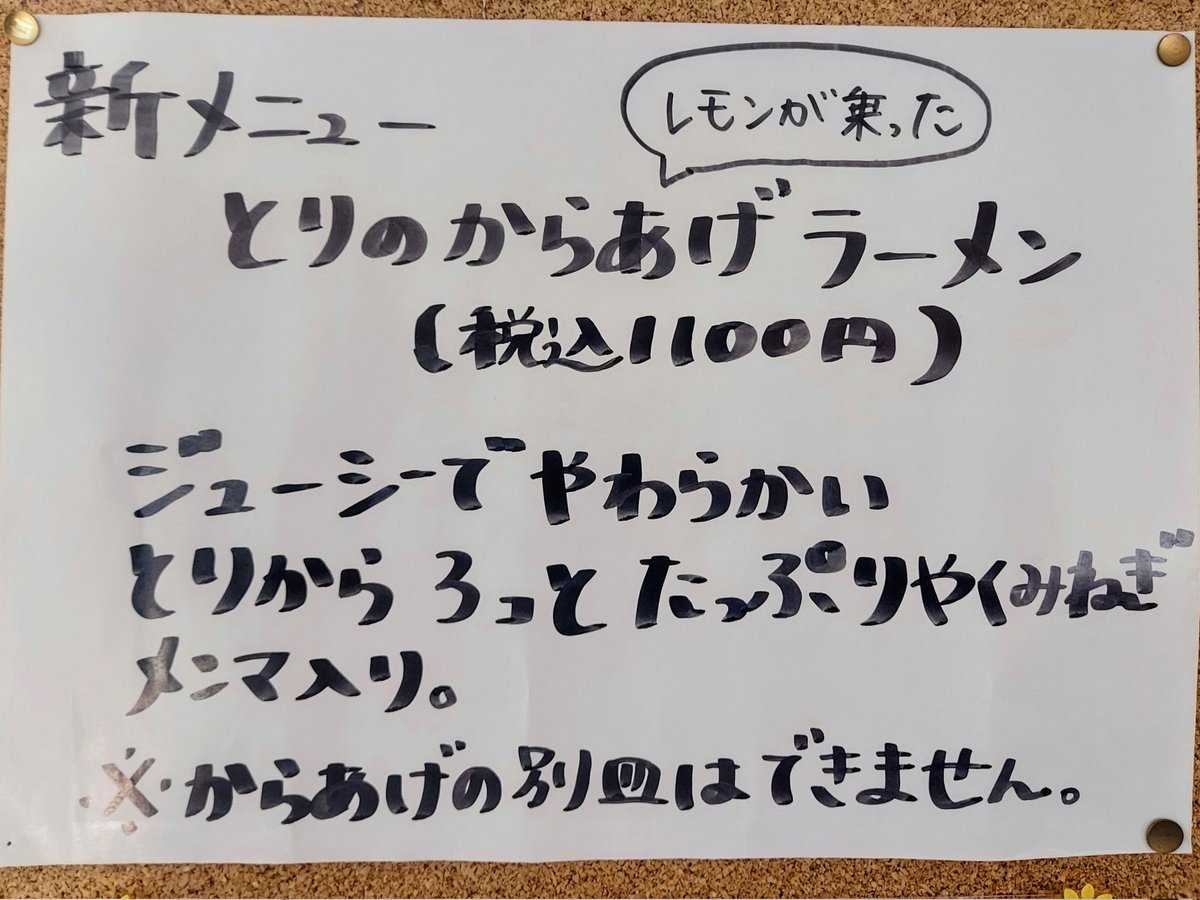 新メニュー
レモンが乗った
とりのからあげラーメン
(税込1100円)
ジューシーでやわらかい
とりから ろっと たっぷりやくみねぎ
メンマ入り。
※からあげの別皿はできません。